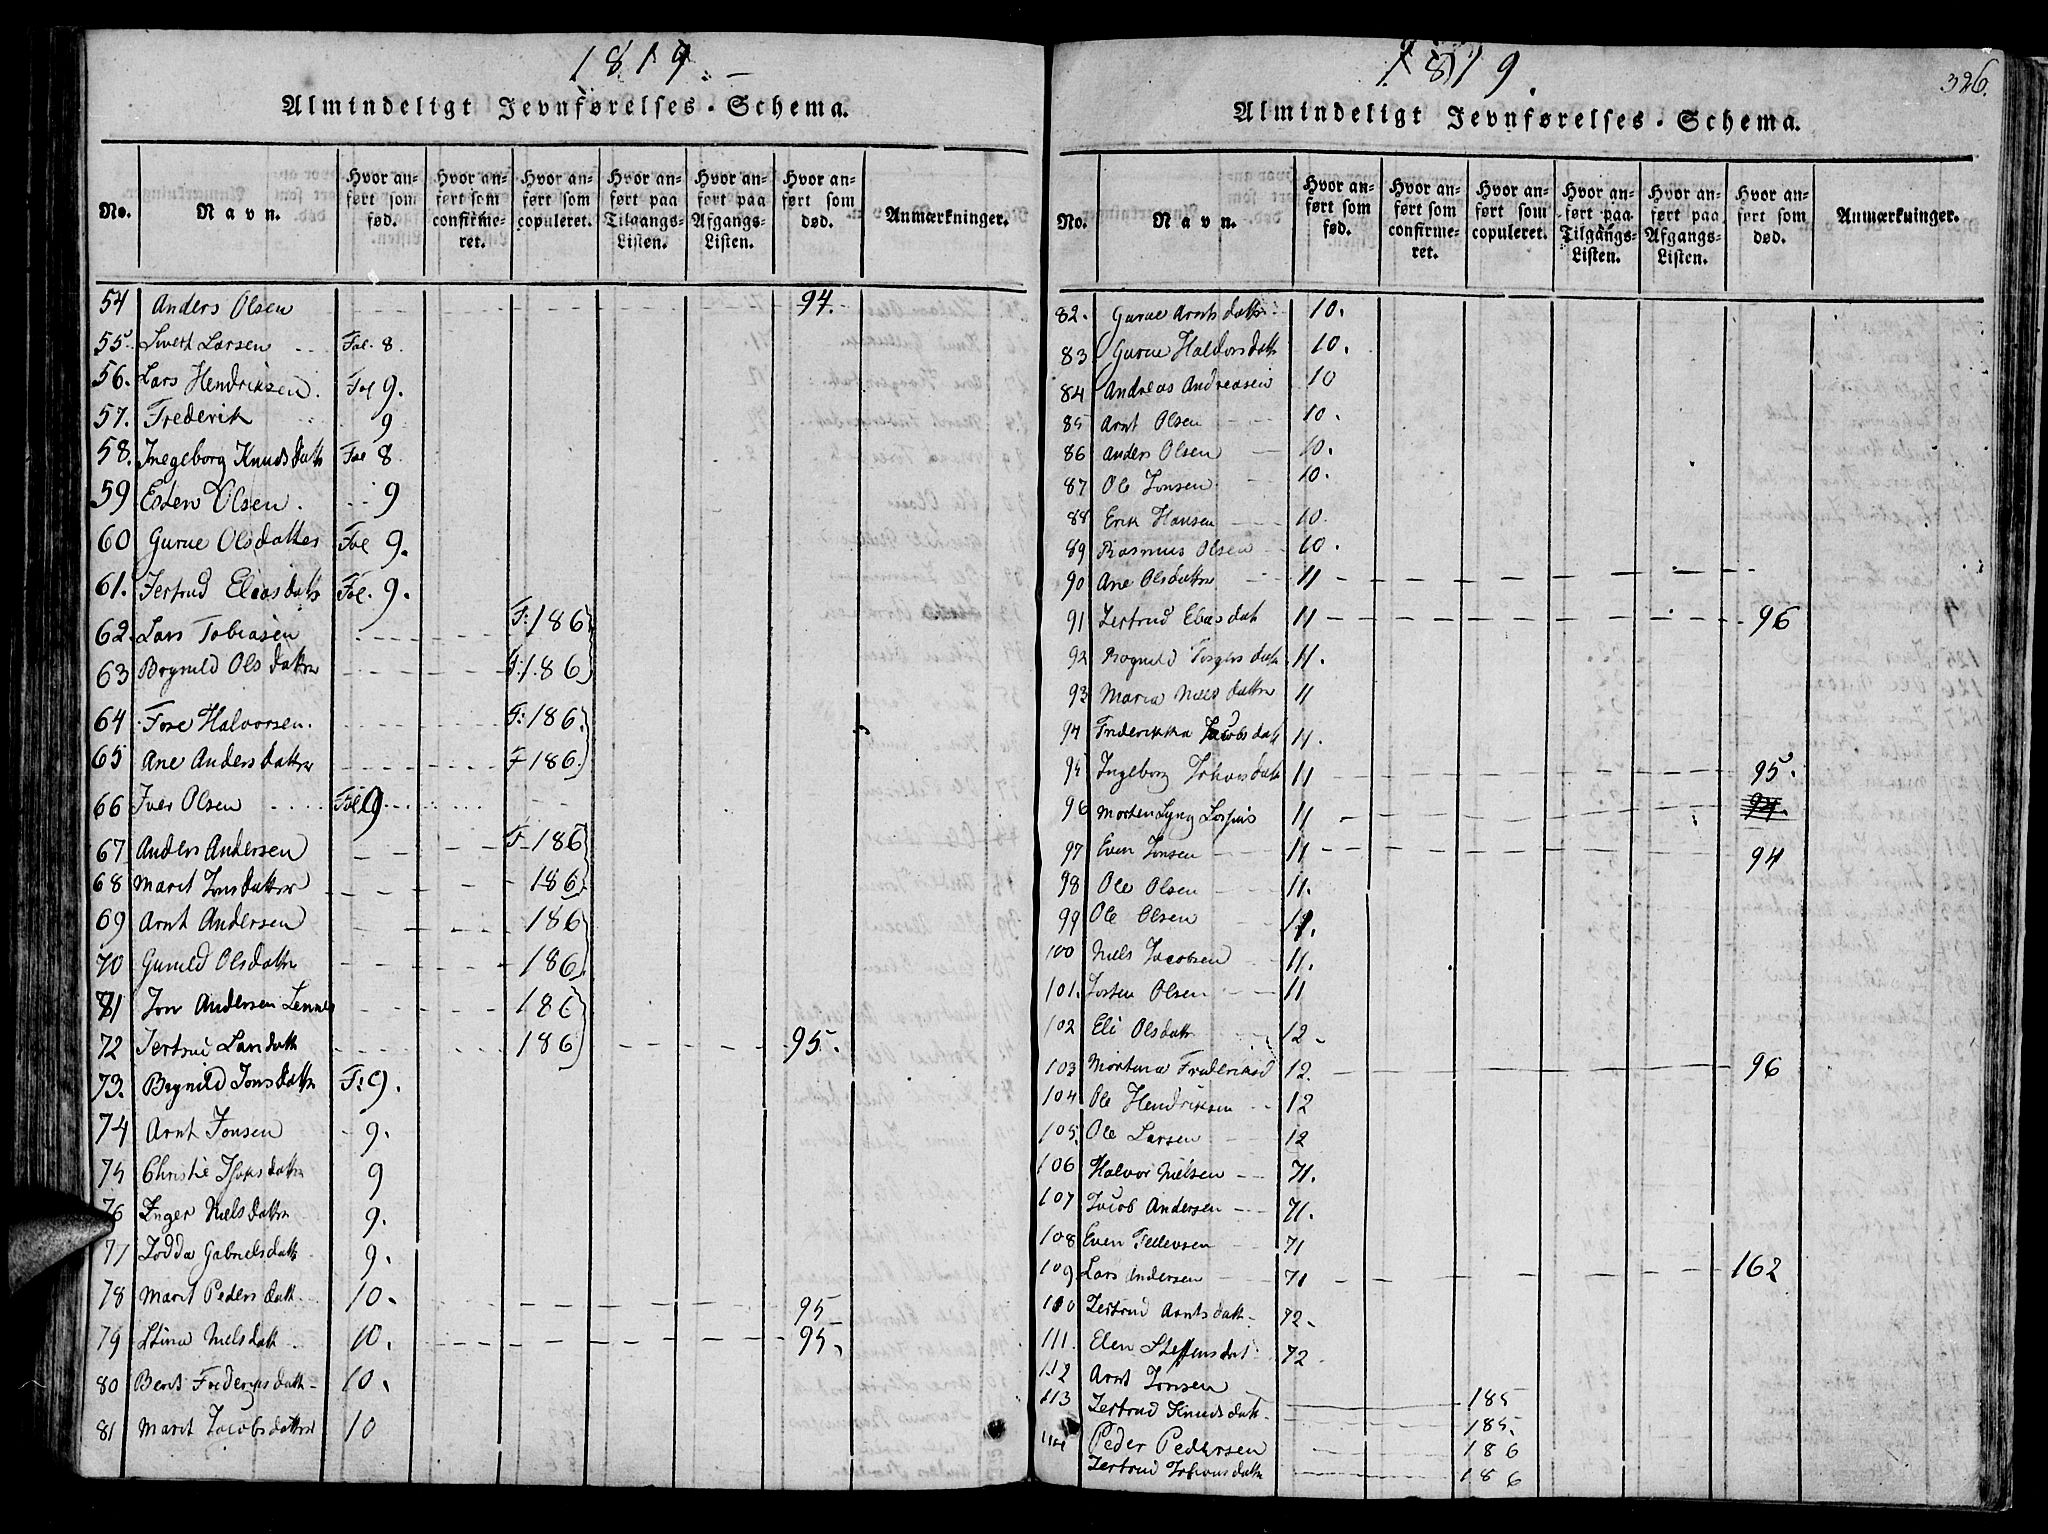 1819.
Almindeligt Jevnførelses-Schema.
No. Navn. Hvor anført som fød. Hvor anført som confirmeret. Hvor anført som copuleret. Hvor anført paa Tilgangs-Listen. Hvor anført paa Afgangs-Listen. Hvor anført som død. Anmærkninger.
54 Anders Olsen 94.
55. Sivert Larsen Fol. 8.
56. Lars Hendriksen. Fol 9.
57. Frederik 9
58. Ingeborg Knudsdattr Fol 8
59 Esten Olsen. 9
60 Gurue Olsdatter Fol 9.
61. Jertrud Eliasdattr Fol. 9.
62. Lars Tobiasen F: 186
63 Brynild Olsdattr F: 186
64 Tore Halvorsen. F: 186.
65 Ane Andersdattr F 186.
66 Iver Olsen Fol 9
67 Anders Andersen F 186
68 Marit Jonsdatter 186
69 Arnt Andersen 186
70 Gunild Olsdattr 186
71 Jon Andersen 186
72 Jertrud Larsdatt 186 95.
73. Brynild Jonsdattr F: 9.
74 Arnt Jonsen 9.
75 Christie 9
76 Inger Nielsdattr 9.
77 Gabrielsdattr 9.
78 Marit Pedersdatt. 10. 95
79 Stina Nielsdatt. 10. 95.
80 Berit Fredriksdatt 10.
81 Marit Jacobsdatter 10
1819.
326.
Almindeligt Jevnførelses-Schema.
No. Navn. Hvor anført som fød. Hvor anført som confirmeret. Hvor anført som copuleret. Hvor anført paa Tilgangs-Listen. Hvor anført paa Afgangs-Listen. Hvor anført som død. Anmærkninger.
82. Gurue Arntsdattr 10.
83 Gurue Haldorsdattr 10.
84 Andreas Andreasen 10
85 Arnt Olsen 10.
86 Anders Olsen 10.
87 Ole Jonsen 10.
88 Erik Hansen 10.
89 Rasmus Olsen 10.
90 Ane Olsdatter 11
91 Jertrud Eliasdatt 11 96
92 Rognild datt 11.
93 Maria Nielsdattr 11
94 Friderikka Jacobsdatt 11.
95 Ingeborg Johansdatt 11 95.
96 Morten Lyng 11 94.
97 Even Jonsen 11 94
98 Ole Olsen 11.
99 Ole Olsen 11.
100 Niels Jacobsen 11.
101. Josten Olsen 11
102 Eli Olsdattr 12.
103 Mortina Frederiksd 12. 96
104 Ole Hendriksen 12
105. Ole Larsen 12
106 Halvor Nielsen 71.
107 Jacob Andersen 71.
108 Even Tellevsen 71
109 Lars Andersen 71 162
110 Jertrud Arntsdatt. 72.
111. Elen Steffensdat 72
112 Arnt Jonsen 185
113 Jertrud Knudsdatt. 185.
114 Peder Pedersen 186
Jertrud Johansdattr 186